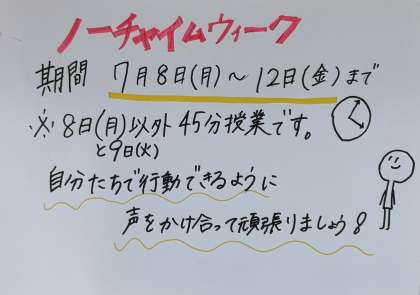 ノーチャイムウィーク
期間 7月8日(月)～12日(金)まで
※8日(月)以外45分授業です。
と9日(火)
自分たちで行動できるように
声をかけ合って頑張りましょう!